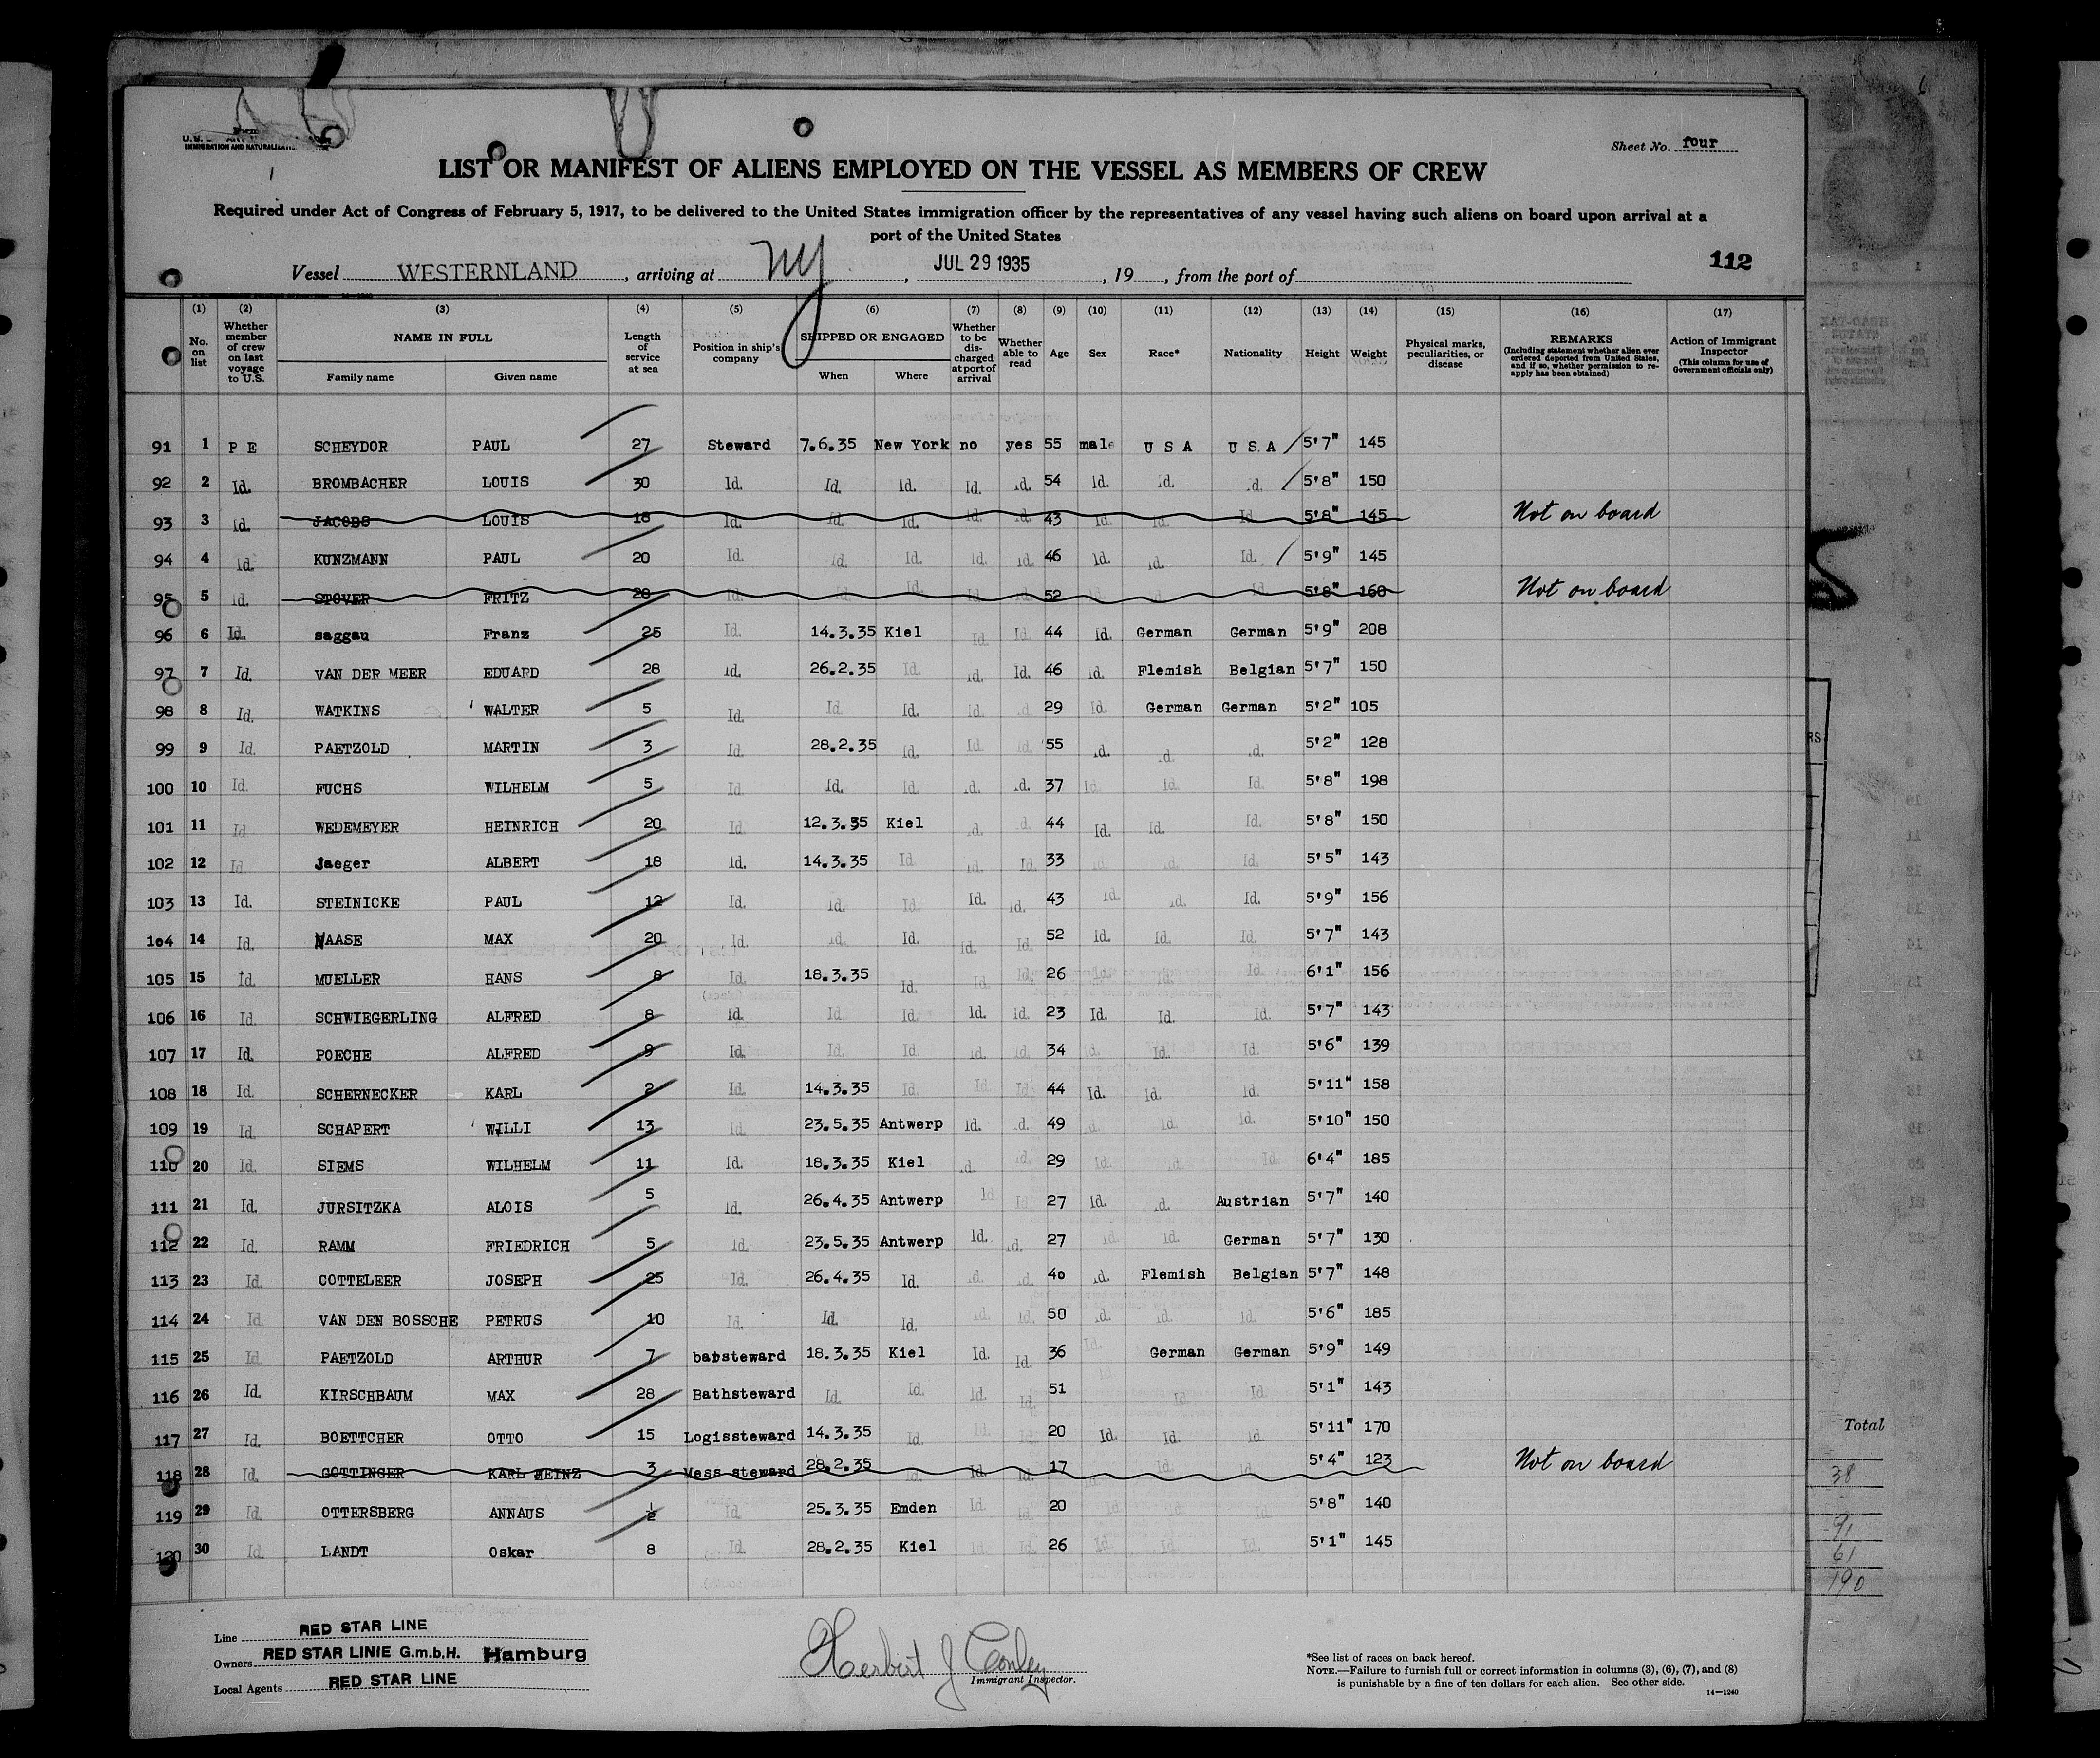 Sheet No. four
LIST OR MANIFEST OF ALIENS EMPLOYED ON THE VESSEL AS MEMBERS OF CREW
Required under Act of Congress of February 5, 1917, to be delivered to the United States immigration officer by the representatives of any vessel having such aliens on board upon arrival at a
port of the United States
112
Vessel WESTERNLAND, arriving at NY, JUL 29 1935, 19, from the port of
(1) (2) (3) (4) (5) (6) (7) (8) (9) (10) (11) (12) (13) (14) (15) (16) (17)
No. on list Whether member of crew on last voyage to U.S. NAME IN FULL Family name Given name Length of service at sea Position in ship's company SHIPPED OR ENGAGED When Where Whether to be discharged at port of arrival Whether able to read Age Sex Race* Nationality Height Weight Physical marks, peculiarities, or disease REMARKS (Including statement whether alien ever ordered deported from United States, and if so, whether permission to reapply has been obtained) Action of Immigrant Inspector (This column for use of Government officials only)
91 1 P E SCHEYDOR PAUL 27 Steward 7.6.35 New York no yes 55 male U S A U S A 5'7" 145
92 2 Id. BROMBACHER LOUIS 30 Id. Id. Id. Id. Id. 54 Id. Id. Id. 5'8" 150
93 3 Id. JACOBS LOUIS 18 Id. Id. Id. Id. Id. 43 Id. Id. Id. 5'8" 145 Not on board
94 4 Id. KUNZMANN PAUL 20 Id. Id. Id. Id. Id. 46 Id. Id. Id. 5'9" 145
95 5 Id. STOVER FRITZ 20 Id. Id. Id. Id. Id. 52 Id. Id. Id. 5'8" 160 Not on board
96 6 Id. saggau Franz 25 Id. 14.3.35 Kiel Id. Id. 44 Id. German German 5'9" 208
97 7 Id. VAN DER MEER EDUARD 28 Id. 26.2.35 Id. Id. Id. 46 Id. Flemish Belgian 5'7" 150
98 8 Id. WATKINS WALTER 5 Id. Id. Id. Id. Id. 29 Id. German German 5'2" 105
99 9 Id. PAETZOLD MARTIN 3 Id. 28.2.35 Id. Id. Id. 55 Id. Id. Id. 5'2" 128
100 10 Id. FUCHS WILHELM 5 Id. Id. Id. Id. Id. 37 Id. Id. Id. 5'8" 198
101 11 Id. WEDEMEYER HEINRICH 20 Id. 12.3.35 Kiel Id. Id. 44 Id. Id. Id. 5'8" 150
102 12 Id. Jaeger ALBERT 18 Id. 14.3.35 Id. Id. Id. 33 Id. 5'5" 143
103 13 Id. STEINICKE PAUL 12 Id. Id. Id. Id. Id. 43 Id. Id. Id. 5'9" 156
104 14 Id. NAASE MAX 20 Id. Id. Id. Id. Id. 52 Id. Id. Id. 5'7" 143
105 15 Id. MUELLER HANS 8 Id. 18.3.35 Id. Id. Id. 26 Id. Id. Id. 6'1" 156
106 16 Id. SCHWIEGERLING ALFRED 8 Id. Id. Id. Id. Id. 23 Id. Id. Id. 5'7" 143
107 17 Id. POECHE ALFRED 9 Id. Id. Id. Id. Id. 34 Id. Id. Id. 5'6" 139
108 18 Id. SCHERNECKER KARL 2 Id. 14.3.35 Id. Id. Id. 44 Id. Id. Id. 5'11" 158
109 19 Id. SCHAPERT WILLI 13 Id. 23.5.35 Antwerp Id. Id. 49 Id. Id. Id. 5'10" 150
110 20 Id. SIEMS WILHELM 11 Id. 18.3.35 Kiel Id. Id. 29 Id. Id. Id. 6'4" 185
111 21 Id. JURSITZKA ALOIS 5 Id. 26.4.35 Antwerp Id. Id. 27 Id. Id. Austrian 5'7" 140
112 22 Id. RAMM FRIEDRICH 5 Id. 23.5.35 Antwerp Id. Id. 27 Id. Id. German 5'7" 130
113 23 Id. COTTELEER JOSEPH 25 Id. 26.4.35 Id. Id. Id. 40 Id. Flemish Belgian 5'7" 148
114 24 Id. VAN DEN BOSSCHE PETRUS 10 Id. Id. Id. Id. Id. 50 Id. Id. Id. 5'6" 185
115 25 Id. PAETZOLD ARTHUR 7 barsteward 18.3.35 Kiel Id. Id. 36 Id. German German 5'9" 149
116 26 Id. KIRSCHBAUM MAX 28 Bathsteward Id. Id. Id. Id. 51 Id. Id. 5'1" 143
117 27 Id. BOETTCHER OTTO 15 Logissteward 14.3.35 Id. Id. Id. 20 Id. Id. Id. 5'11" 170
118 28 Id. GOTTINGER KARL HEINZ 3 Mess steward 28.2.35 Id. Id. Id. 17 Id. Id. 5'4" 123 Not on board
119 29 Id. OTTERSBERG ANNAUS 1/2 Id. 25.3.35 Emden Id. Id. 20 Id. Id. Id. 5'8" 140
120 30 Id. LANDT Oskar 8 Id. 28.2.35 Kiel Id. Id. 26 Id. Id. Id. 5'1" 145
Total
38
91
61
190
Line RED STAR LINE
Owners RED STAR LINIE G.m.b.H. Hamburg
Local Agents RED STAR LINE
Herbert J Conley
Immigrant Inspector.
*See list of races on back hereof.
NOTE.—Failure to furnish full or correct information in columns (3), (6), (7), and (8)
is punishable by a fine of ten dollars for each alien. See other side.
14—1240